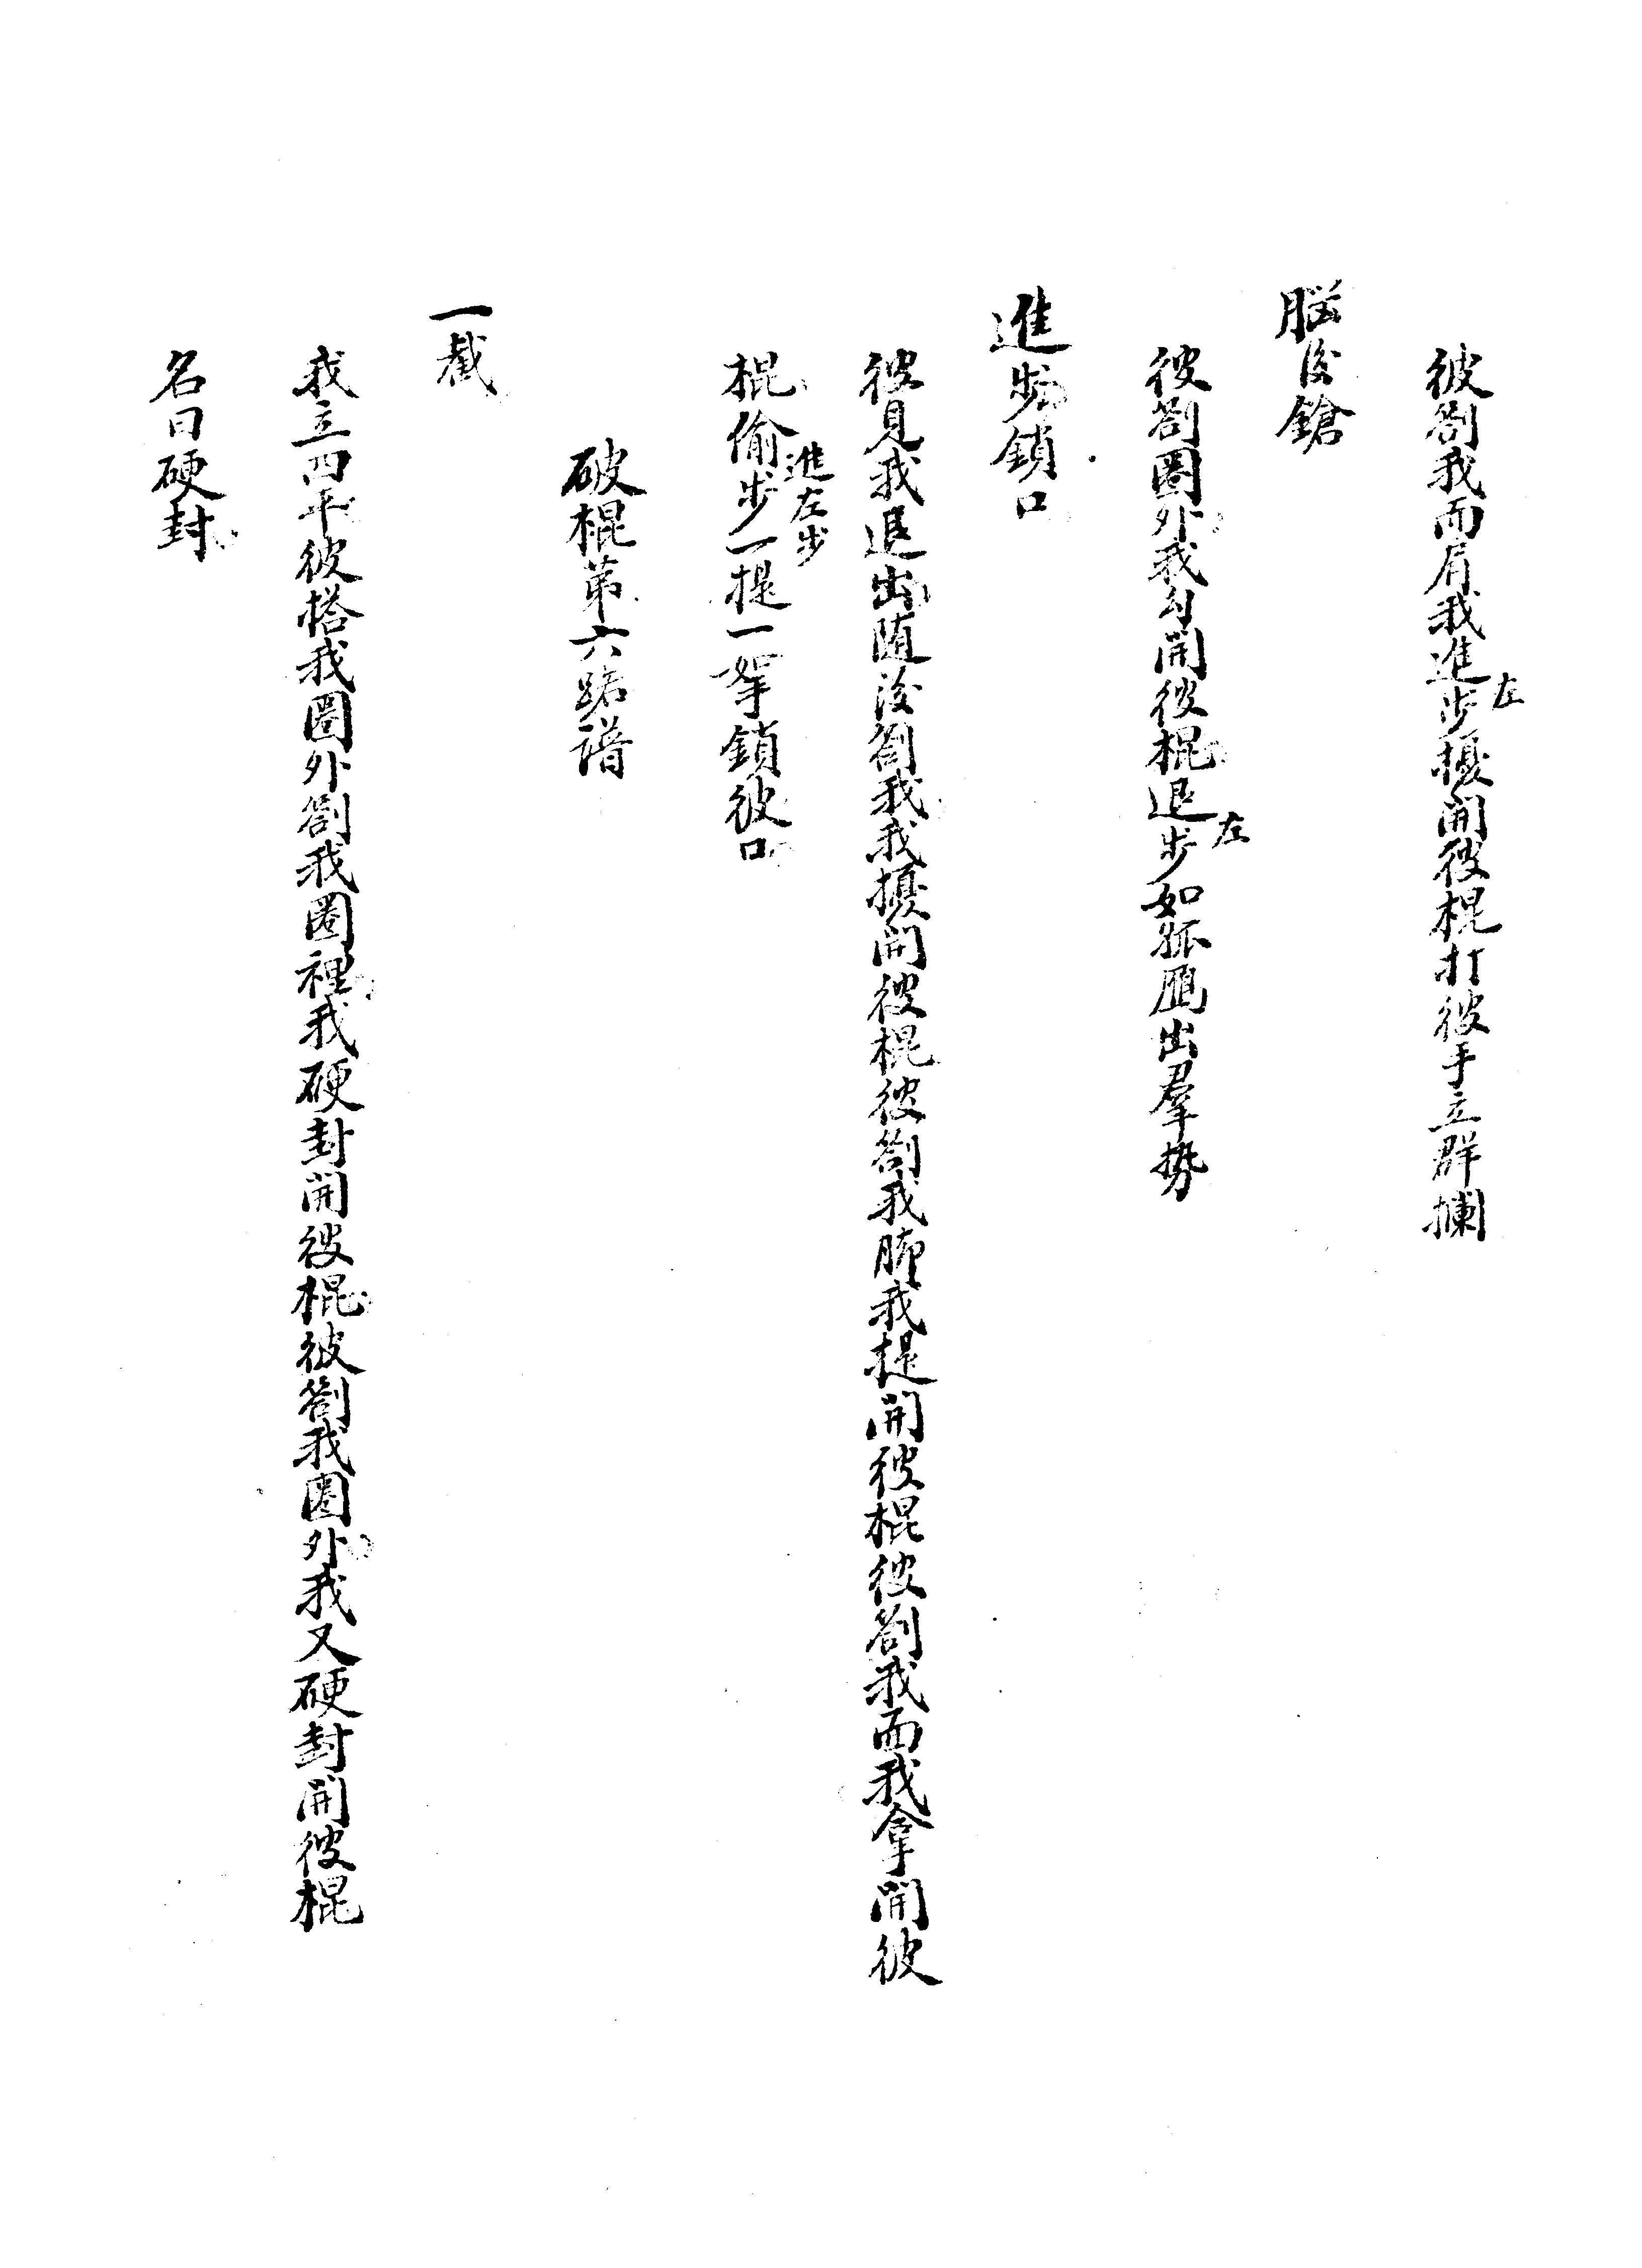 彼劄我面肩我進左步擾開彼棍打彼手立群攔
腦後鎗
彼劄圈外我勾開彼棍退左步如孤鴈出羣勢
進步鎖口
彼見我退出随後劄我我擾開彼棍彼劄我脚我提開彼棍彼劄我面我拿開彼
棍偷步進左步一提一拏鎖彼口
破棍第六路譜
一截
我立四平彼搭我圈外劄我圈裡我硬封開彼棍彼劄我圈外我又硬封開彼棍
名曰硬封